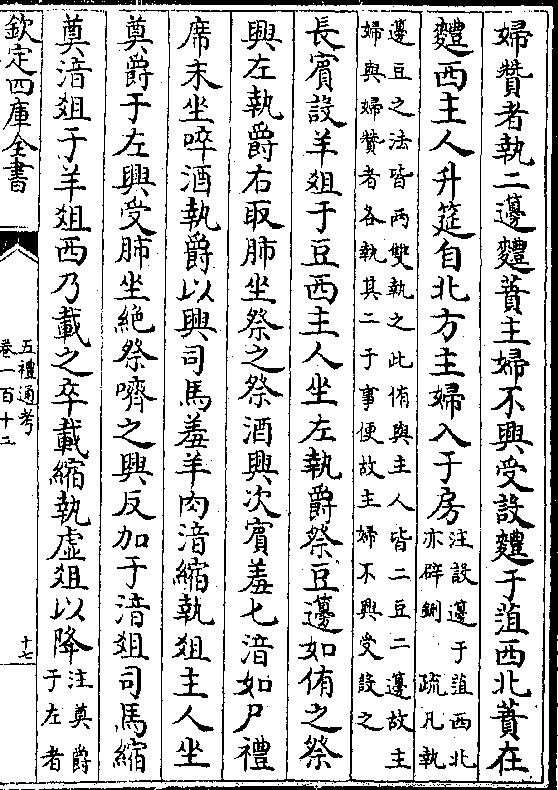 婦贊者執二籩麷蕡主婦不興受設麷于菹西北蕡在
麷西主人升筵自北方主婦入于房注設籩于菹西北
亦辟鉶　疏凡執
籩豆之法皆兩雙執之此侑與主人皆二豆二籩故主
婦與婦贊者各執其二于事便故主婦不興受設之
長賓設羊俎于豆西主人坐左執爵祭豆籩如侑之祭
興左執爵右取肺坐祭之祭酒興次賓羞匕湆如尸禮
席末坐啐酒執爵以興司馬羞羊肉湆縮執俎主人坐
奠爵于左興受肺坐絶祭嚌之興反加于湆俎司馬縮
奠湆俎于羊俎西乃載之卒載縮執虛俎以降注奠爵
于左者
欽定四庫全書
五禮通考
卷一百十二
十七